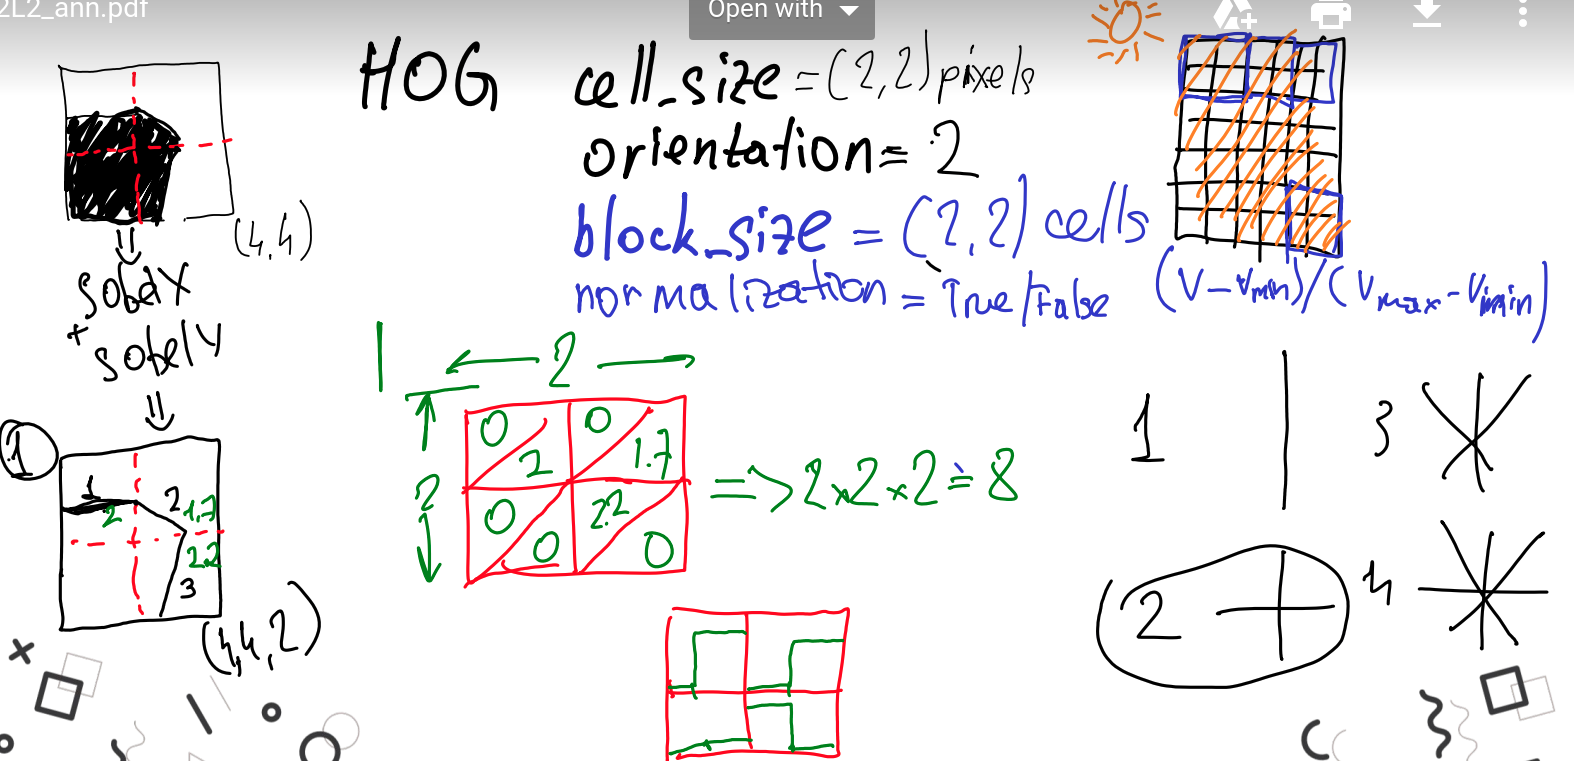 2L2_ann.pdf
Open with
HOG
cell_size = (2,2) pixels
orientation = 2
block_size = (2,2) cells
normalization = True/False
(V-Vmin)/(Vmax-Vmin)
(4,4)
sobelX
+
sobelY
1
1
2
2
1,7
2.2
3
(4,4,2)
1
2
2
0
2
0
1.7
0
0
2.2
0
=> 2x2x2 = 8
1
3
2
4